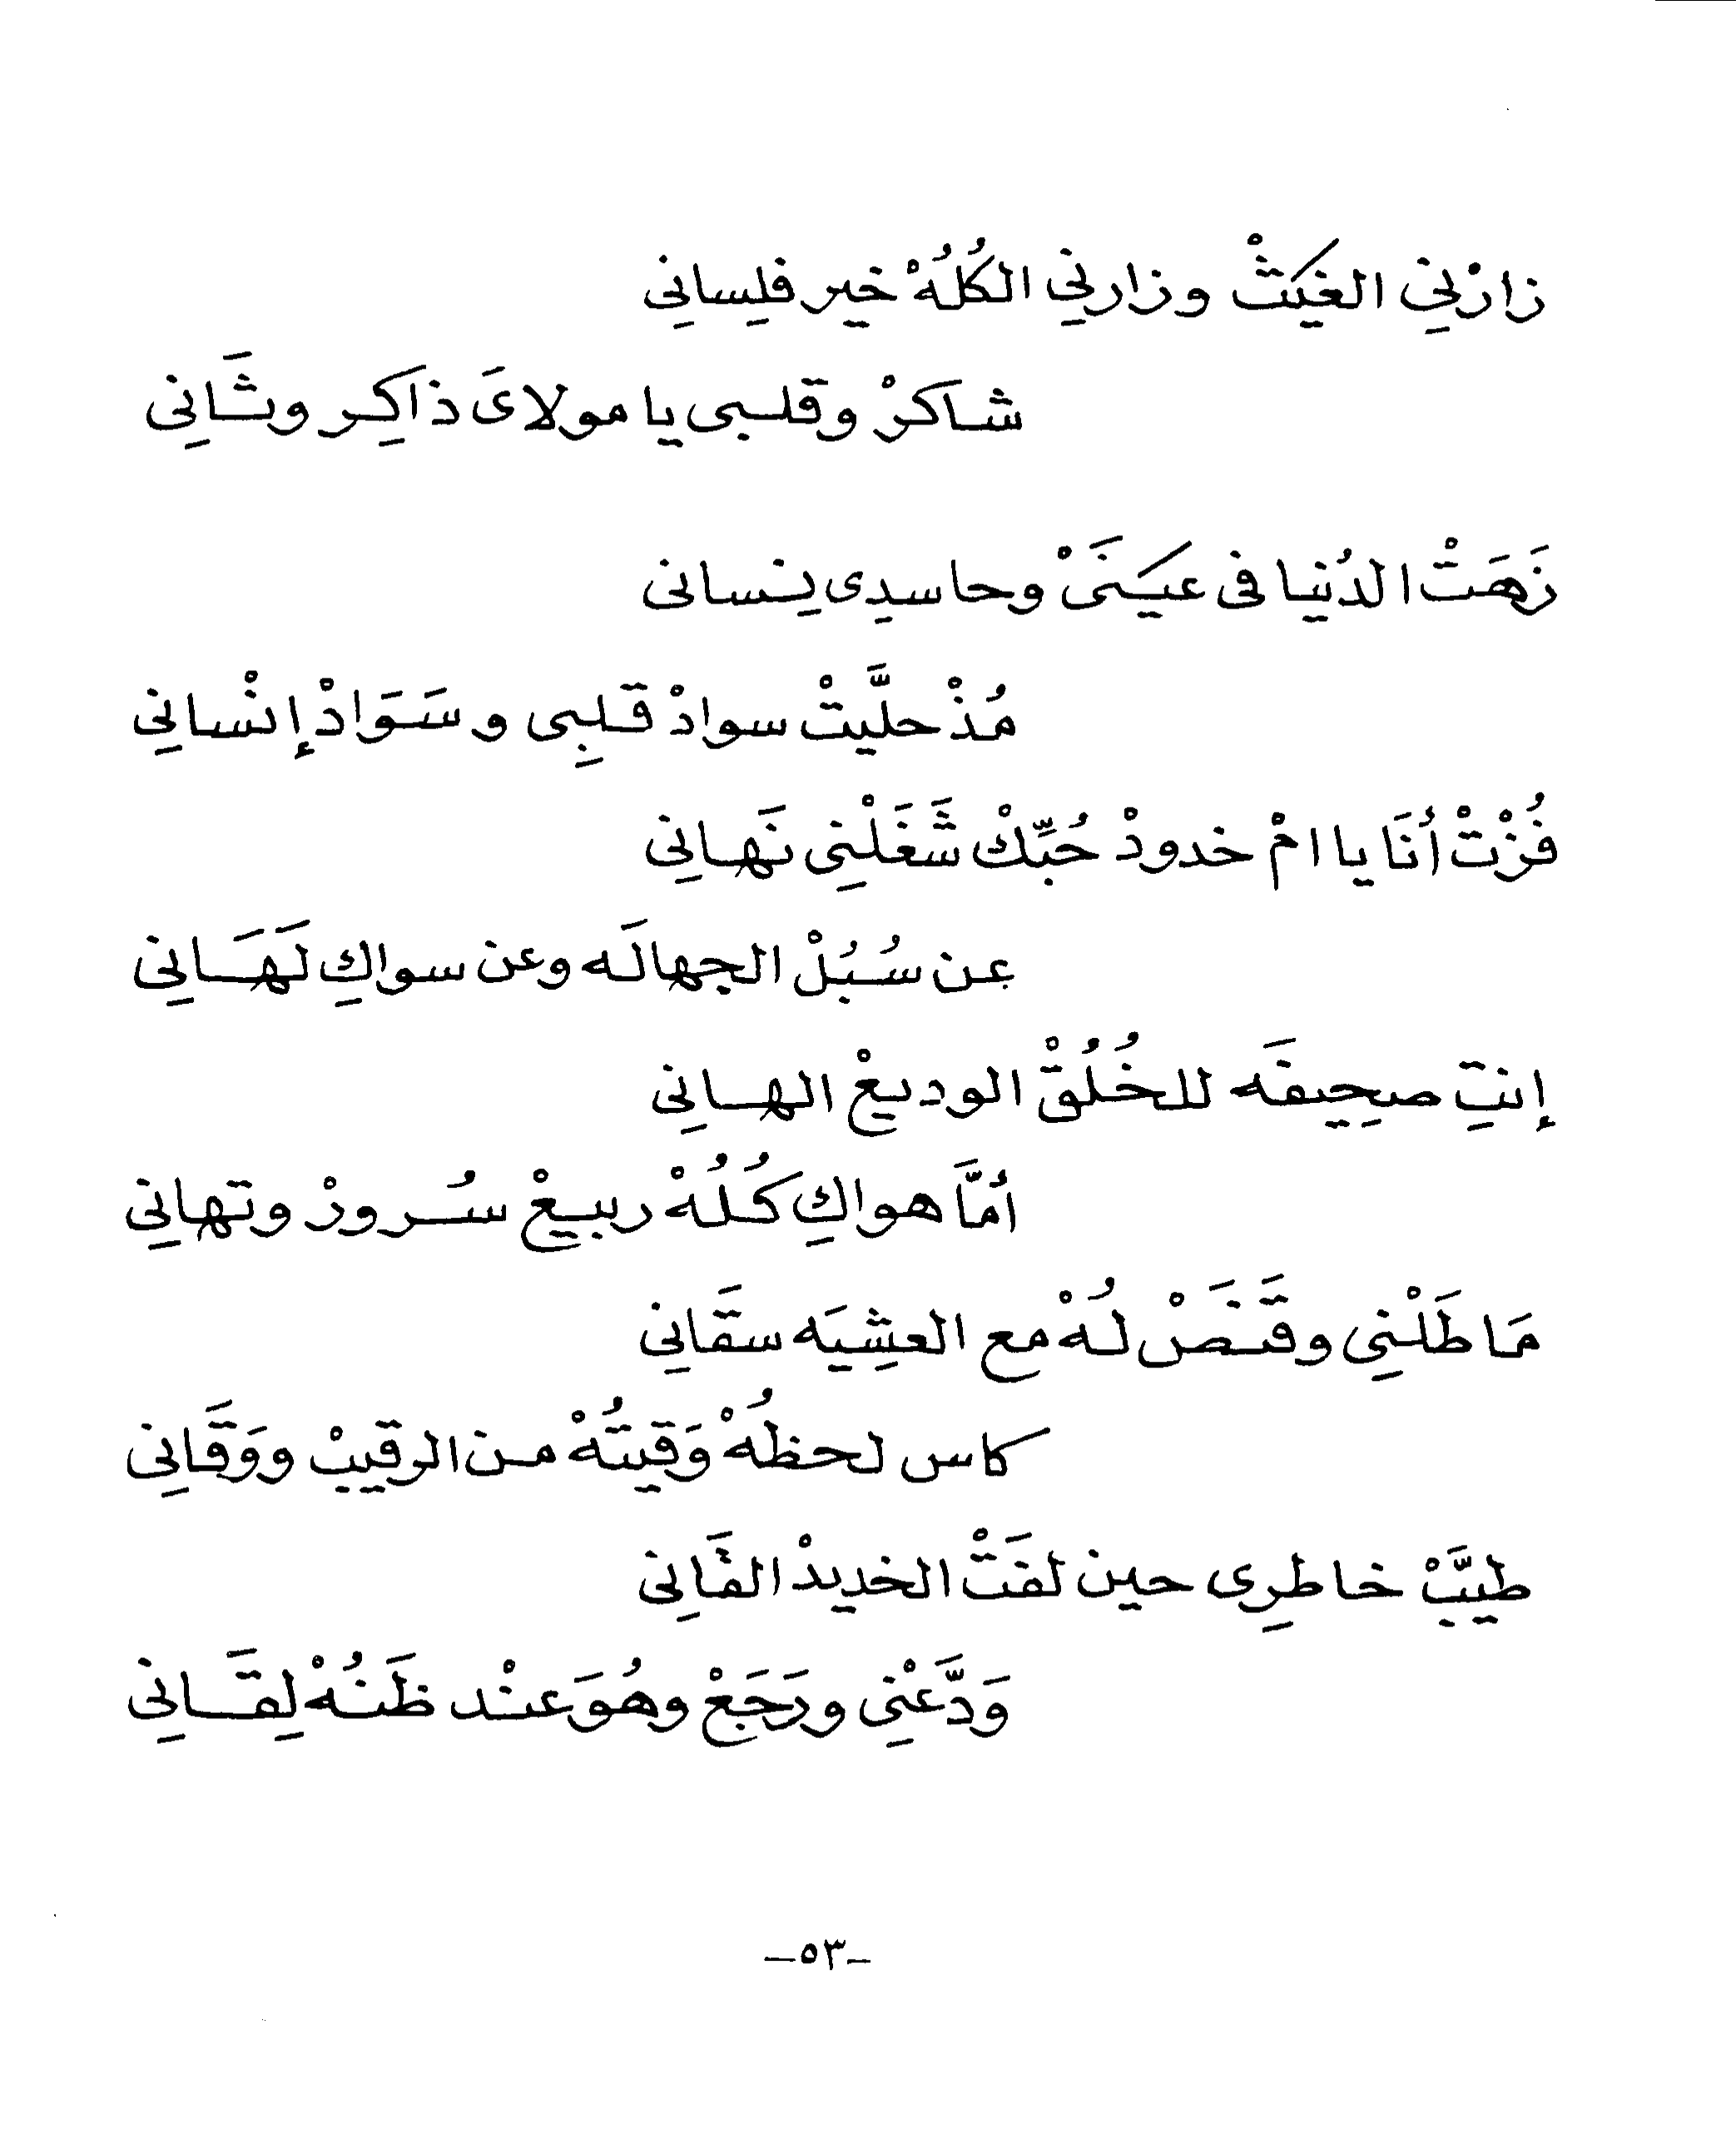 زارْنِي الغيَثْ وزارنِي الكُلُهْ خيِر فلِسانِي
شاكرْ وقلبى يا مولاىَ ذاكِر وثَانِي
زَهَتْ الدُنيا فى عيَنَىْ وحاسدِى ينِسانى
مُذْ حلَّيتْ سوادْ قلبِى وسَوَادْ إنْسانِي
فُزْتْ أنَا يا امْ خدودْ حُبِّكْ شَغَلْنِى نَهانِي
عن سُبُلْ الجهالَه وعن سواكِ لَهَانِي
إنتِ صحِيفَه للخُلُقْ الوديعْ الهانِي
أمَّا هواكِ كُلُهْ ربيعْ سُرورْ وتهانِي
مَاطَلْنِى وقَنَصْ لُهْ مع العشِيَه سقَانِي
كاس لحظُهْ وَقيتُهْ من الرقيبْ ووَقَانِى
طيَّبْ خاطرِى حين لفَتْ الخديدْ القَانِى
وَدَّعْنِى ورَجَعْ وهُوَ عنْد ظَنُهْ لِقَانِي
-٥٣-